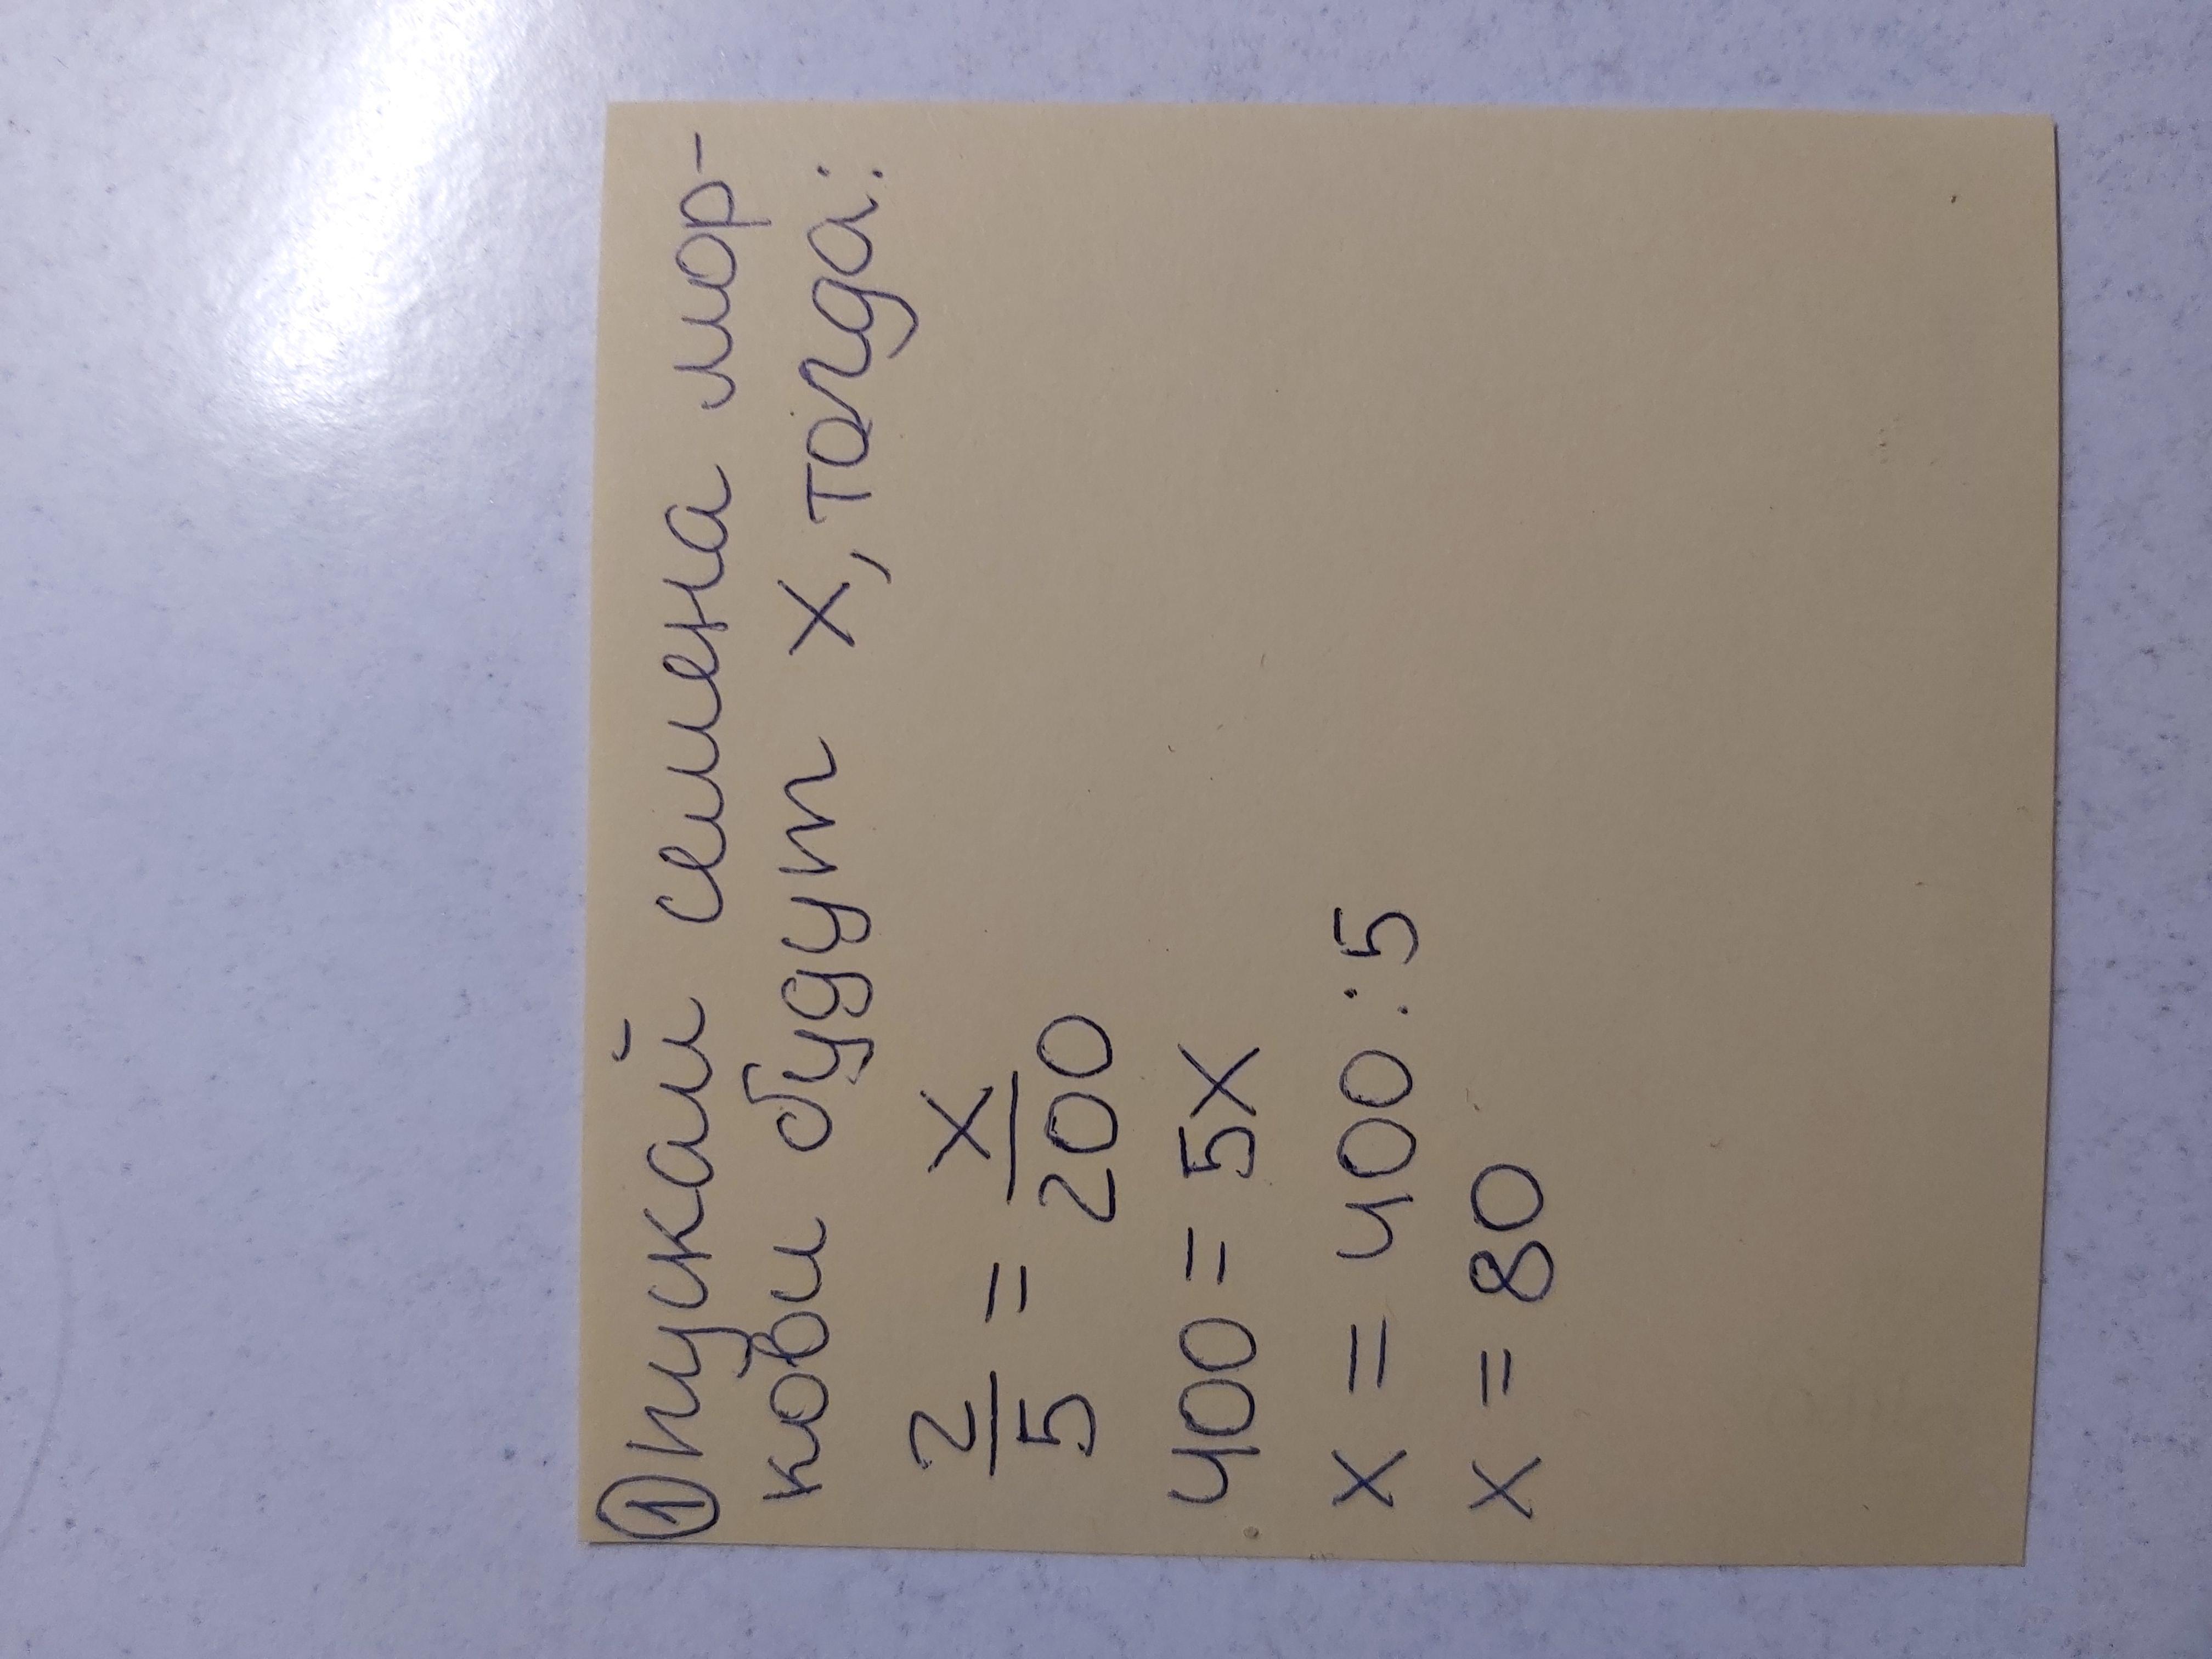 ① пускай семена мор-
кови будут x, тогда:
2/5 = x/200
400 = 5x
x = 400:5
x = 80